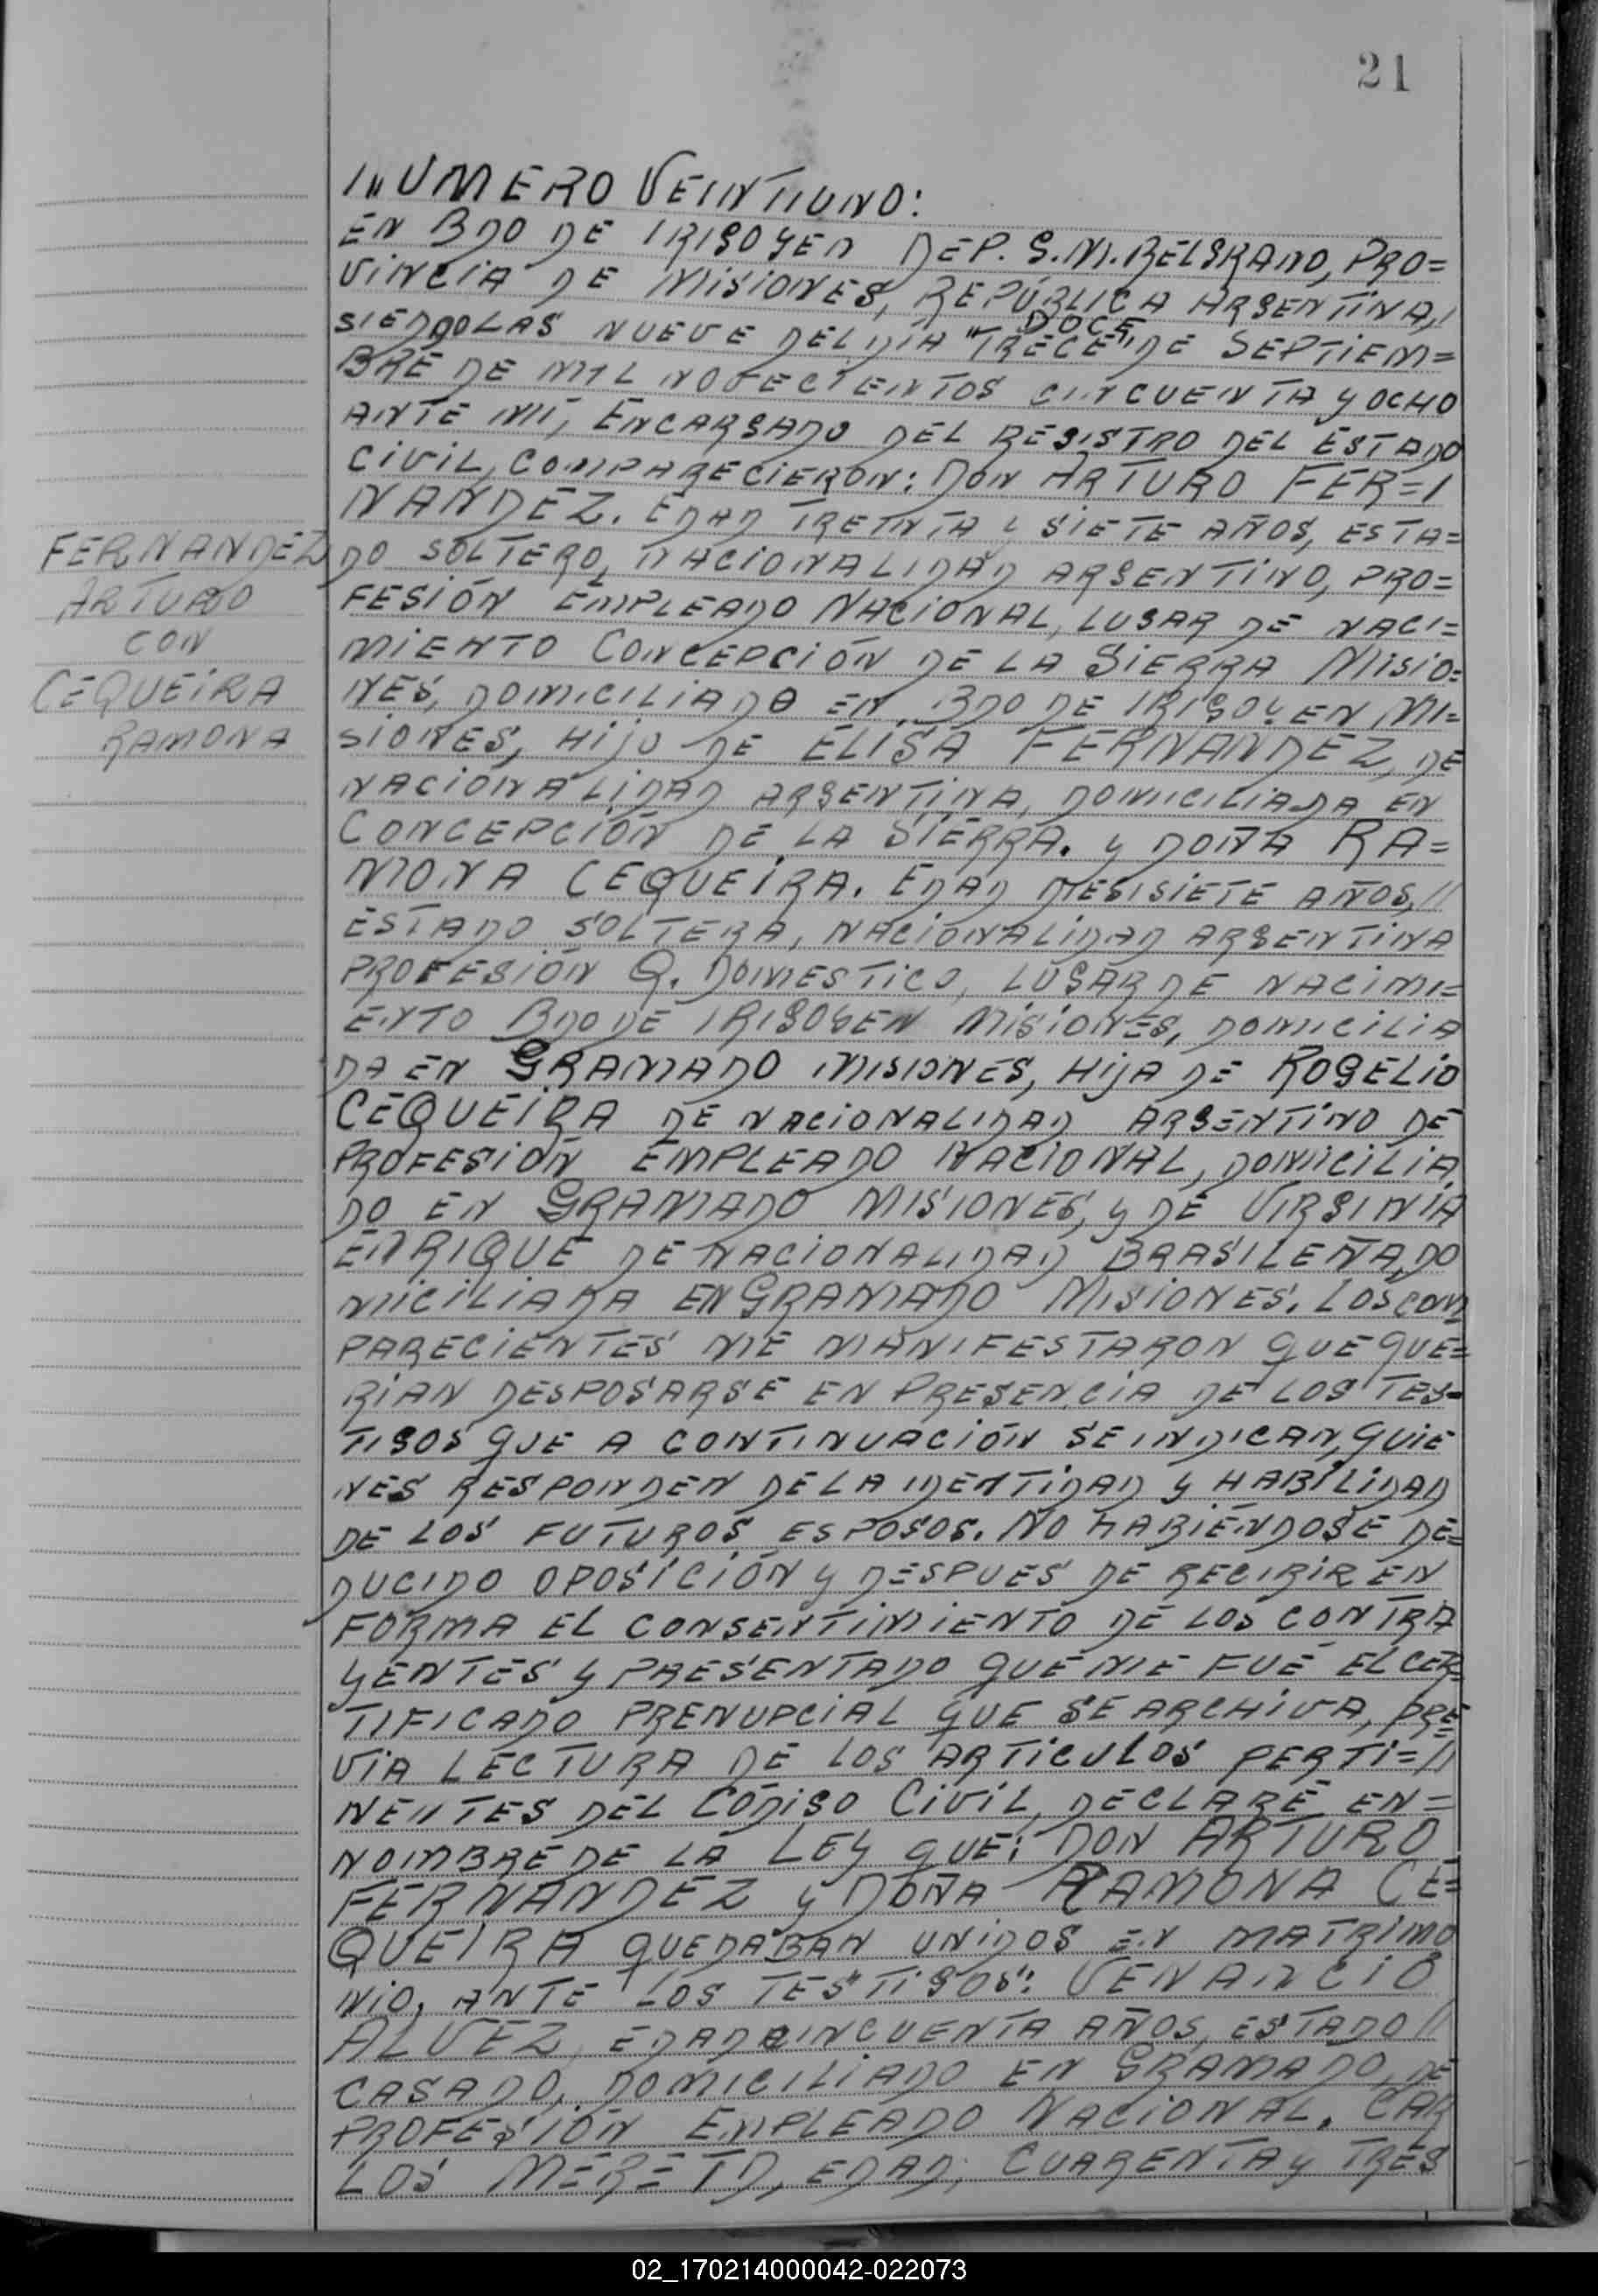 21
NUMERO VEINTIUNO:
EN BDO DE IRIGOYEN DEP. G.M.BELGRANO, PRO=
VINCIA DE MISIONES, REPÚBLICA ARGENTINA,/
SIENDOLAS NUEVE DEL DÍA "TRECE" DOCE DE SEPTIEM=
BRE DE MIL NOVECIENTOS CINCUENTA Y OCHO
ANTE MÍ, ENCARGADO DEL REGISTRO DEL ESTADO
CIVIL, COMPARECIERON: DON ARTURO FER=/
NANDEZ. EDAD TREINTA Y SIETE AÑOS, ESTA=
DO SOLTERO, NACIONALIDAD ARGENTINO, PRO=
FESIÓN EMPLEADO NACIONAL, LUGAR DE NACI=
MIENTO CONCEPCIÓN DE LA SIERRA MISIO=
NES, DOMICILIADO EN BDO DE IRIGOYEN MI=
SIONES, HIJO DE ELISA FERNANDEZ, DE
NACIONALIDAD ARGENTINA, DOMICILIADA EN
CONCEPCIÓN DE LA SIERRA. Y DOÑA RA=
MONA CEQUEIRA. EDAD DIESISIETE AÑOS,//
ESTADO SOLTERA, NACIONALIDAD ARGENTINA
PROFESIÓN Q. DOMESTICO, LUGAR DE NACIMI=
ENTO BDO DE IRIGOYEN MISIONES, DOMICILIA
DA EN GRAMADO MISIONES, HIJA DE ROGELIO
CEQUEIRA DE NACIONALIDAD ARGENTINO DE
PROFESIÓN EMPLEADO NACIONAL, DOMICILIA
DO EN GRAMADO MISIONES, Y DE VIRGINIA
ENRIQUE DE NACIONALIDAD BRASILEÑA, DO
MICILIADA EN GRAMADO MISIONES. LOS COM
PARECIENTES ME MANIFESTARON QUE QUE=
RIAN DESPOSARSE EN PRESENCIA DE LOS TES=
TIGOS QUE A CONTINUACIÓN SE INDICAN, QUIE
NES RESPONDEN DE LA IDENTIDAD Y HABILIDAD
DE LOS FUTUROS ESPOSOS. NO HABIENDOSE DE=
DUCIDO OPOSICIÓN Y DESPUES DE RECIBIR EN
FORMA EL CONSENTIMIENTO DE LOS CONTRA
YENTES Y PRESENTADO QUE ME FUÉ EL CER=
TIFICADO PRENUPCIAL QUE SE ARCHIVA, PRE=
VIA LECTURA DE LOS ARTICULOS PERTI=//
NENTES DEL CÓDIGO CIVIL, DECLARÉ EN=
NOMBRE DE LA LEY QUE: DON ARTURO
FERNANDEZ Y DOÑA RAMONA CE=
QUEIRA QUEDABAN UNIDOS EN MATRIMO
NIO, ANTE LOS TESTIGOS: VENANCIO
ALVEZ, EDAD CINCUENTA AÑOS, ESTADO //
CASADO, DOMICILIADO EN GRAMADO, DE
PROFESIÓN EMPLEADO NACIONAL. CAR
LOS EDAD, CUARENTA Y TRES
FERNANDEZ
ARTURO
CON
CEQUEIRA
RAMONA
02_170214000042-022073